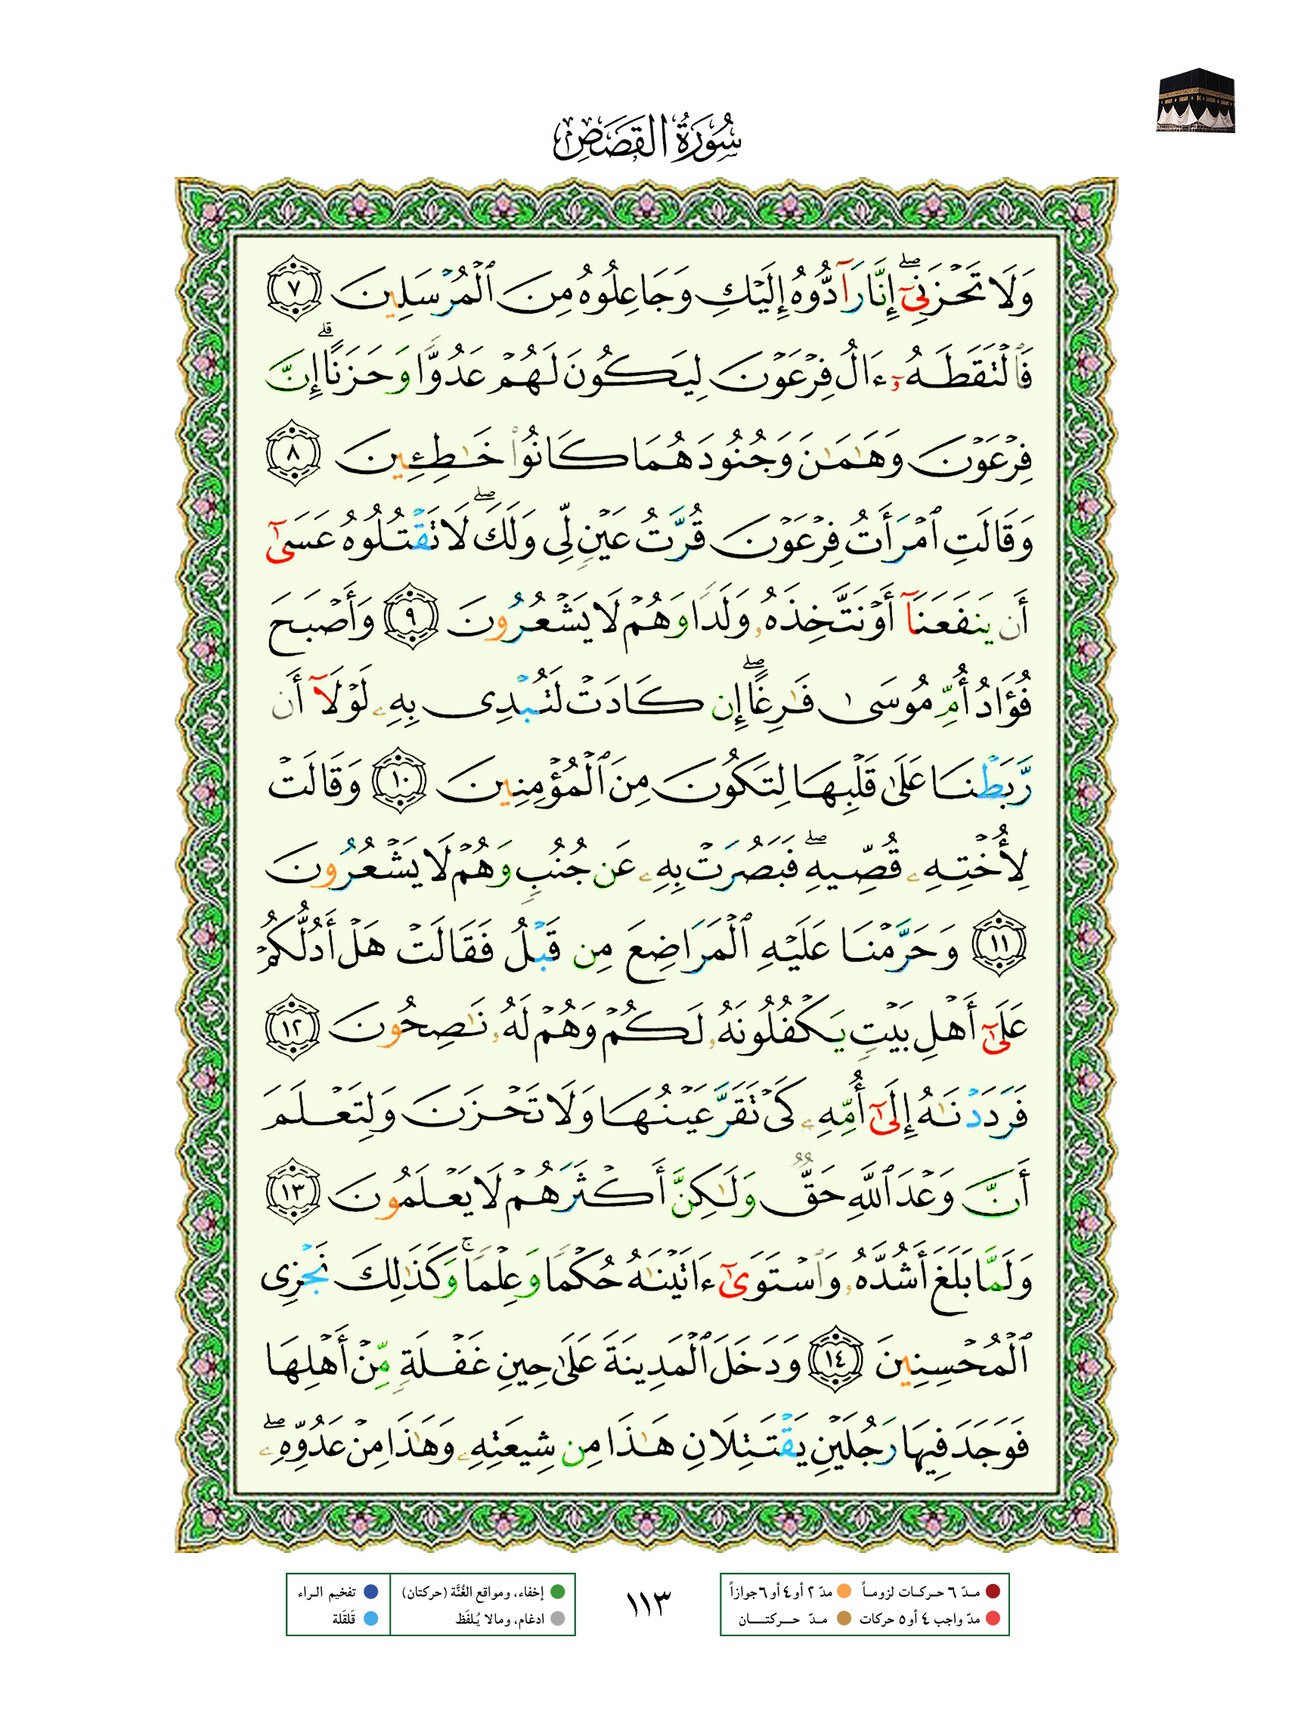 سُورَةُ القَصَصِ
وَلَا تَحْزَنِىٓ ۖ إِنَّا رَآدُّوهُ إِلَيْكِ وَجَاعِلُوهُ مِنَ ٱلْمُرْسَلِينَ ٧
فَٱلْتَقَطَهُۥٓ ءَالُ فِرْعَوْنَ لِيَكُونَ لَهُمْ عَدُوًّا وَحَزَنًا ۗ إِنَّ
فِرْعَوْنَ وَهَـٰمَـٰنَ وَجُنُودَهُمَا كَانُوا۟ خَـٰطِـِٔينَ ٨
وَقَالَتِ ٱمْرَأَتُ فِرْعَوْنَ قُرَّتُ عَيْنٍ لِّى وَلَكَ ۖ لَا تَقْتُلُوهُ عَسَىٰٓ
أَن يَنفَعَنَآ أَوْ نَتَّخِذَهُۥ وَلَدًا وَهُمْ لَا يَشْعُرُونَ ٩ وَأَصْبَحَ
فُؤَادُ أُمِّ مُوسَىٰ فَـٰرِغًا ۖ إِن كَادَتْ لَتُبْدِى بِهِۦ لَوْلَآ أَن
رَّبَطْنَا عَلَىٰ قَلْبِهَا لِتَكُونَ مِنَ ٱلْمُؤْمِنِينَ ١٠ وَقَالَتْ
لِأُخْتِهِۦ قُصِّيهِ ۖ فَبَصُرَتْ بِهِۦ عَن جُنُبٍ وَهُمْ لَا يَشْعُرُونَ
١١ وَحَرَّمْنَا عَلَيْهِ ٱلْمَرَاضِعَ مِن قَبْلُ فَقَالَتْ هَلْ أَدُلُّكُمْ
عَلَىٰٓ أَهْلِ بَيْتٍ يَكْفُلُونَهُۥ لَكُمْ وَهُمْ لَهُۥ نَـٰصِحُونَ ١٢
فَرَدَدْنَـٰهُ إِلَىٰٓ أُمِّهِۦ كَىْ تَقَرَّ عَيْنُهَا وَلَا تَحْزَنَ وَلِتَعْلَمَ
أَنَّ وَعْدَ ٱللَّهِ حَقٌّ وَلَـٰكِنَّ أَكْثَرَهُمْ لَا يَعْلَمُونَ ١٣
وَلَمَّا بَلَغَ أَشُدَّهُۥ وَٱسْتَوَىٰٓ ءَاتَيْنَـٰهُ حُكْمًا وَعِلْمًا ۚ وَكَذَٰلِكَ نَجْزِى
ٱلْمُحْسِنِينَ ١٤ وَدَخَلَ ٱلْمَدِينَةَ عَلَىٰ حِينِ غَفْلَةٍ مِّنْ أَهْلِهَا
فَوَجَدَ فِيهَا رَجُلَيْنِ يَقْتَتِلَانِ هَـٰذَا مِن شِيعَتِهِۦ وَهَـٰذَا مِنْ عَدُوِّهِۦ ۖ
مدّ ٦ حركات لزوماً مدّ ٢ أو ٤ أو ٦ جوازاً
مدّ واجب ٤ أو ٥ حركات مدّ حركتان
١١٣
إخفاء، ومواقع الغُنَّة (حركتان) تفخيم الراء
ادغام، ومالا يُلفَظ قلقلة